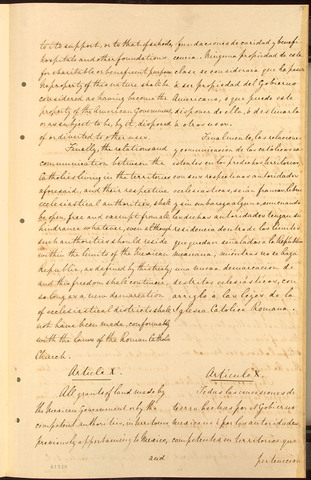 to its support, or to that of schools,
hospitals and other foundations
for charitable or beneficent purposes.
No property of this nature shall be
considered as having become the
property of the American Government,
or as subject to be, by it, disposed
of or diverted to other uses.
Finally, the relations and
communication between the
Catholics living in the territories
aforesaid, and their respective
ecclesiastical authorities, shall
be open, free and exempt from all
hindrance whatever, even although
such authorities should reside
within the limits of the Mexican
Republic, as defined by this treaty;
and this freedom shall continue,
so long as a new demarcation
of ecclesiastical districts shall
not have been made, conformably
with the laws of the Roman Catholic
Church.
Article X.
All grants of land made by
the Mexican Government or by the
competent authorities, in territories
previously appertaining to Mexico,
and
fundaciones de caridad y benefi-
cencia. Ninguna propiedad de esta
clase se considerará que ha pasado
á ser propiedad del Gobierno
Americano, ó que puede este
disponer de ella, ó destinarla
á otros usos.
Finalmente, las relaciones
y comunicacion de los catolicos ex-
istentes en los predichos territorios,
con sus respectivas autoridades
eclesiasticas, serán francas, libres
y sin embarazo alguno, aun cuando
las dichas autoridades tengan su
residencia dentro de los limites
que quedan señalados á la República
mexicana, mientras no se haga
una nueva demarcacion de
distritos eclesiasticos, con
arreglo á las leyes de la
Iglesia Catolica Romana.
Articulo X.
Todas las concesiones de
tierra hechas por el Gobierno
mexicano ó por las autoridades
competentes, en territorios que
pertenecieron